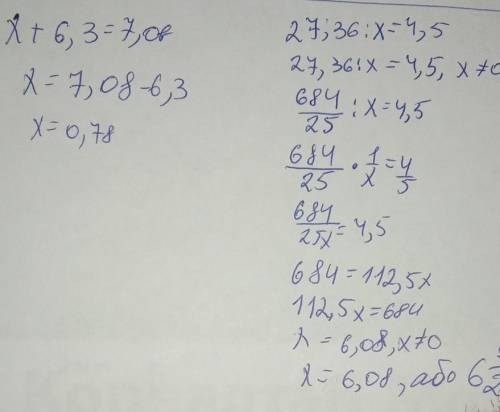 x + 6,3 = 7,08
x = 7,08 - 6,3
x = 0,78
27,36 : x = 4,5
27,36 : x = 4,5, x ≠ 0
684/25 : x = 4,5
684/25 · 1/x = 4/5
684/25x = 4,5
684 = 112,5x
112,5x = 684
x = 6,08, x ≠ 0
x = 6,08, або 6